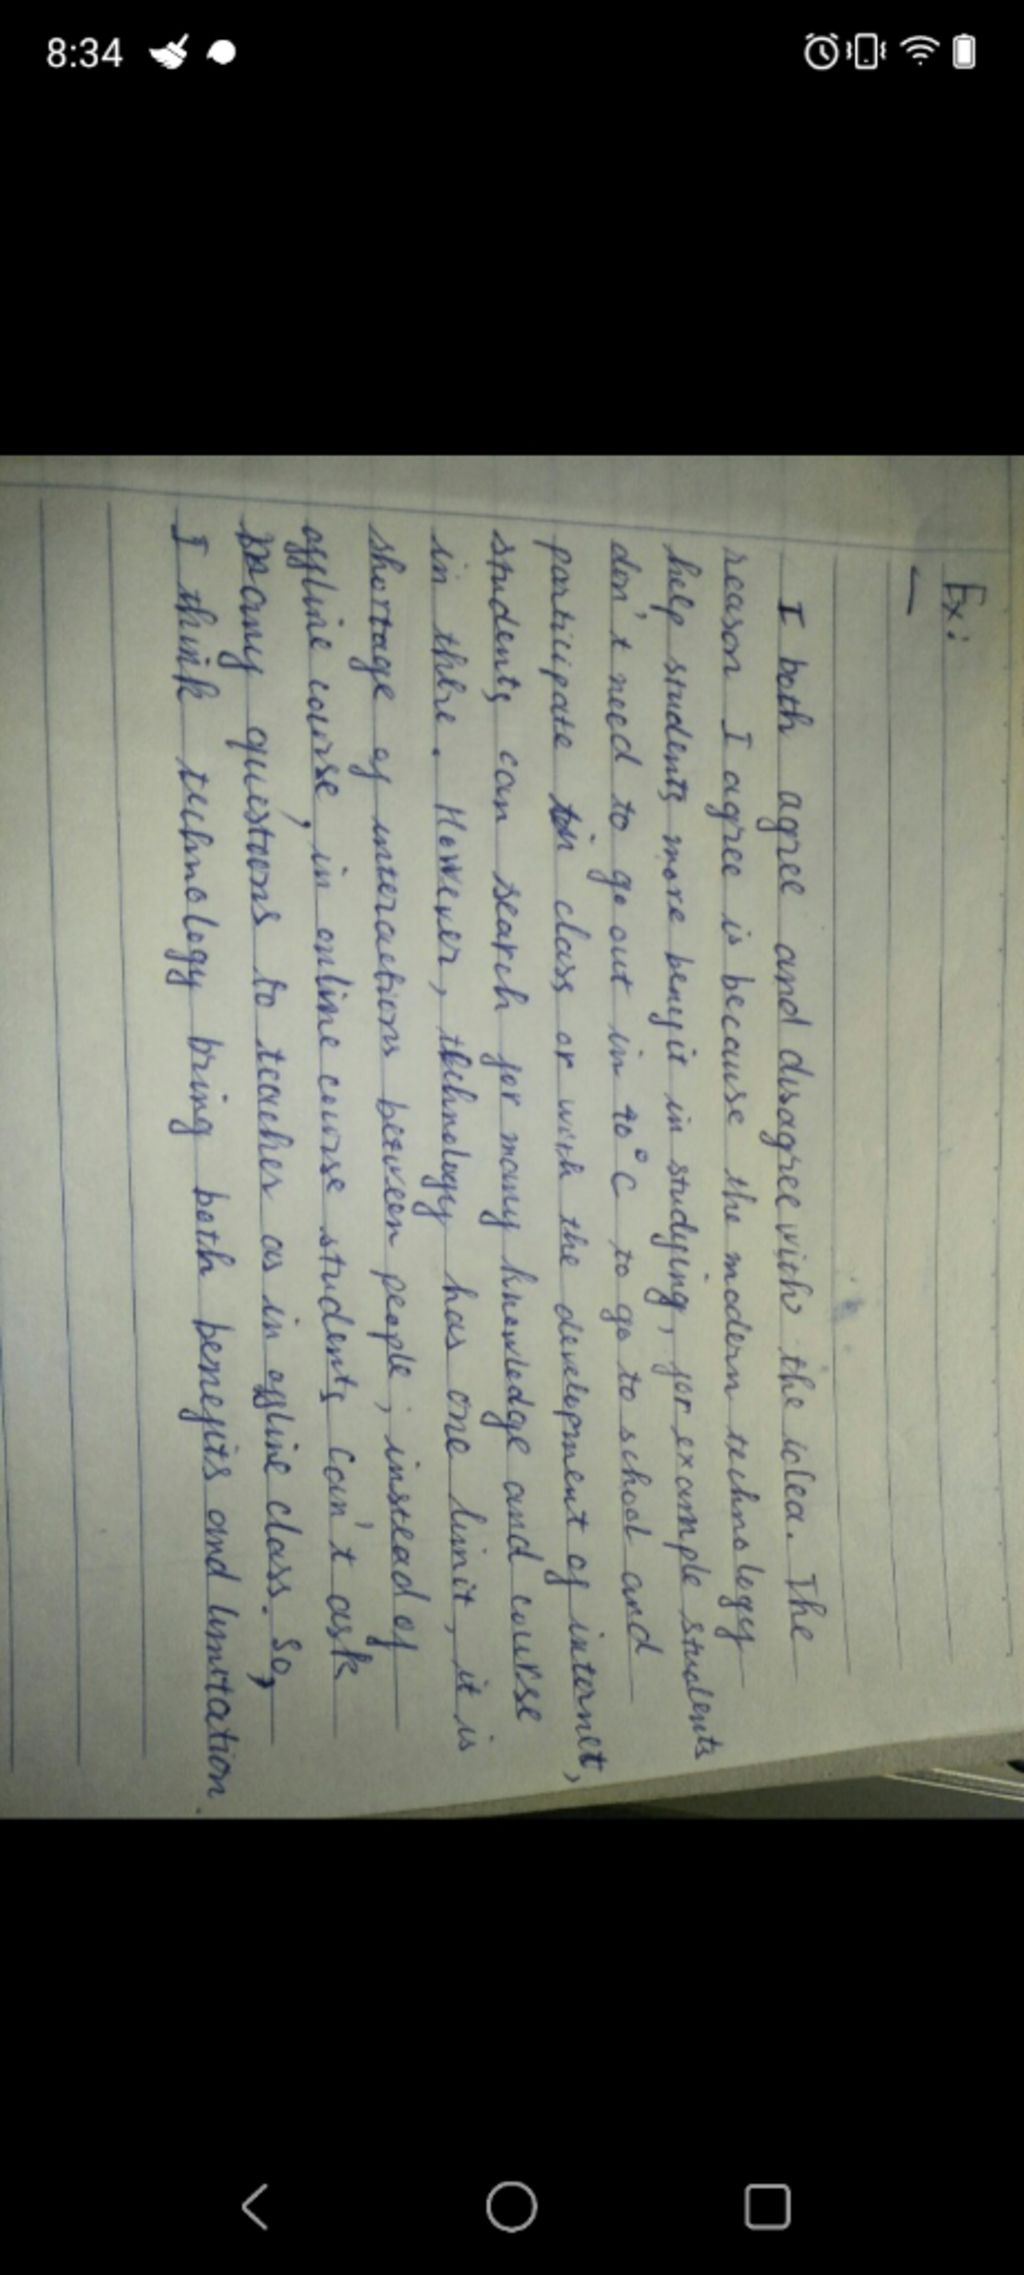 8:34
Ex:
I both agree and disagree with the idea. The
reason I agree is because the modern technology
help students more benefit in studying, for example students
don't need to go out in 40°C to go to school and
participate in class or with the development of internet,
students can search for many knowledge and course
in there. However, technology has one limit, it is
shortage of interactions between people; instead of
offline course, in online course students can't ask
many questions to teacher as in offline class. So,
I think technology bring both benefits and limitation.